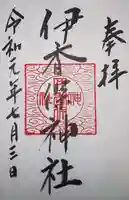 奉拝
伊香保神社
令和元年七月三日